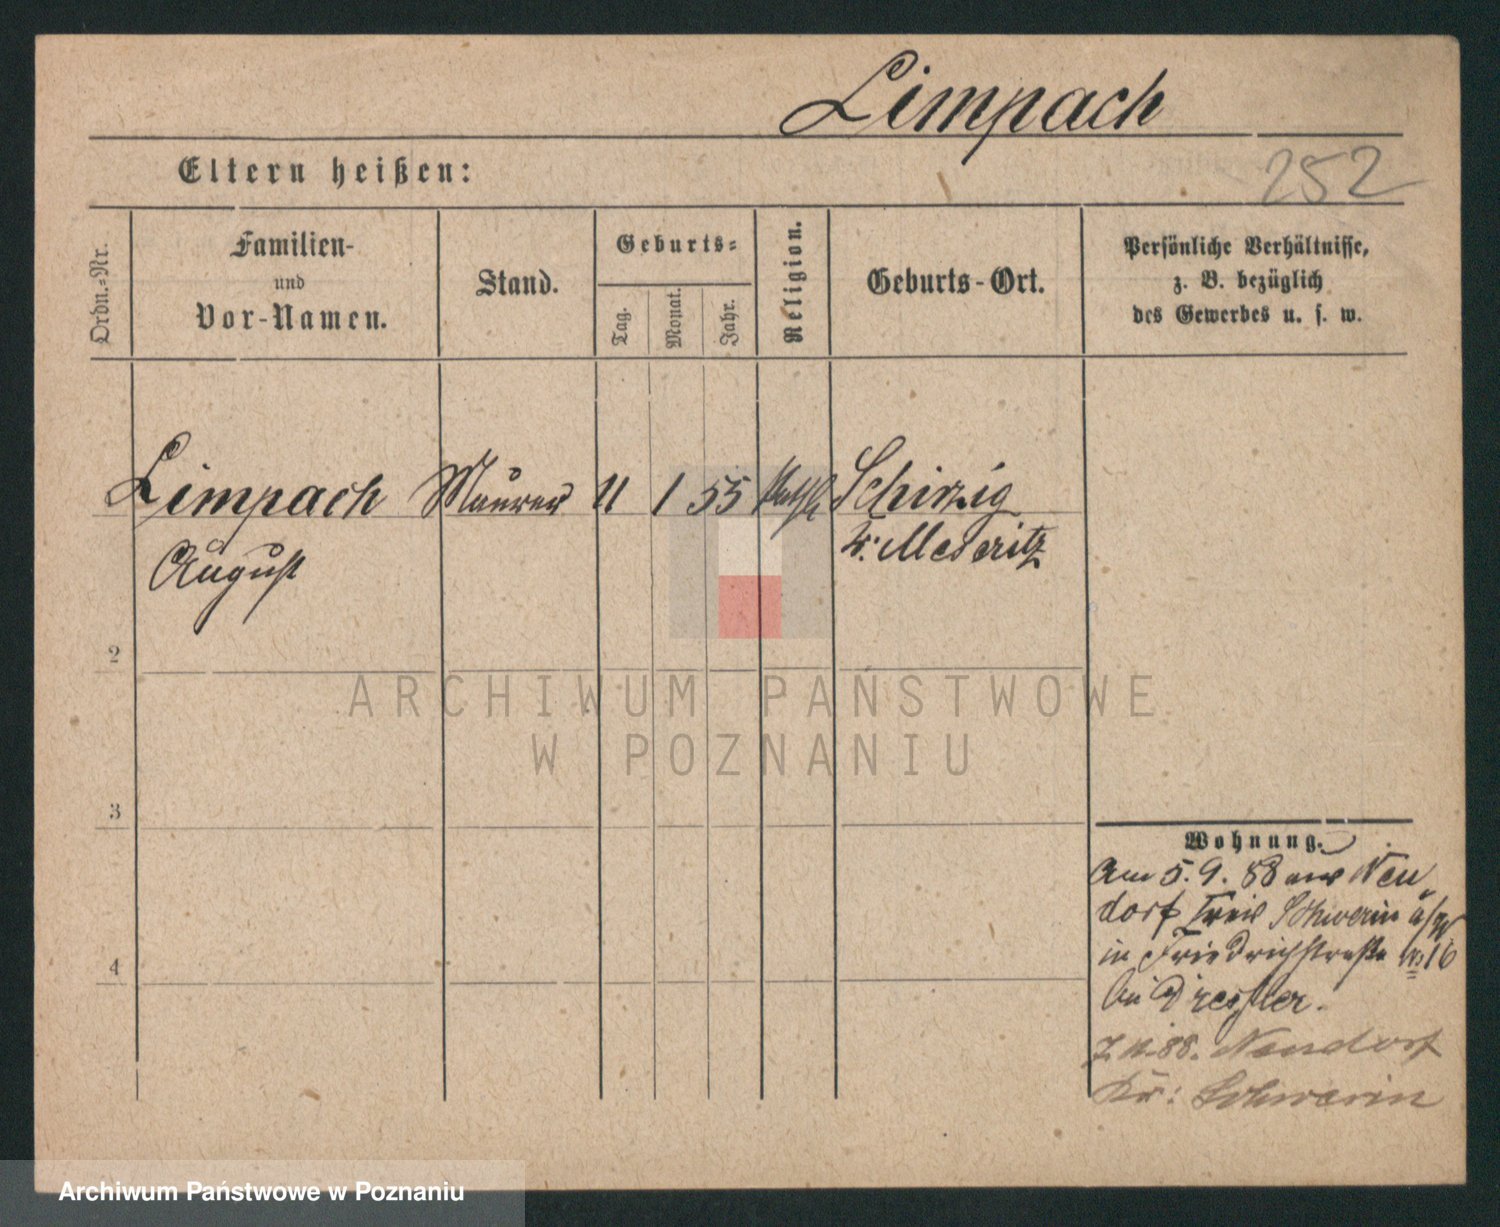 Limpach
Eltern heißen:
252
Ordn.-Nr.
Familien-
und
Vor-Namen.
Stand.
Geburts-
Tag.
Monat.
Jahr.
Religion.
Geburts-Ort.
Persönliche Verhältnisse,
z. B. bezüglich
des Gewerbes u. s. w.
Limpach Maurer 11 1 55 kath Schirzig
August Kr. Meseritz
2
3
4
ARCHIWUM PAŃSTWOWE
W POZNANIU
Wohnung.
Am 5.9.88 aus Neu
dorf Kreis Schwerin a/W
in Friedrichstraße No 16
bei Dressler.
7.11.88. Neudorf
Kr: Schwerin
Archiwum Państwowe w Poznaniu